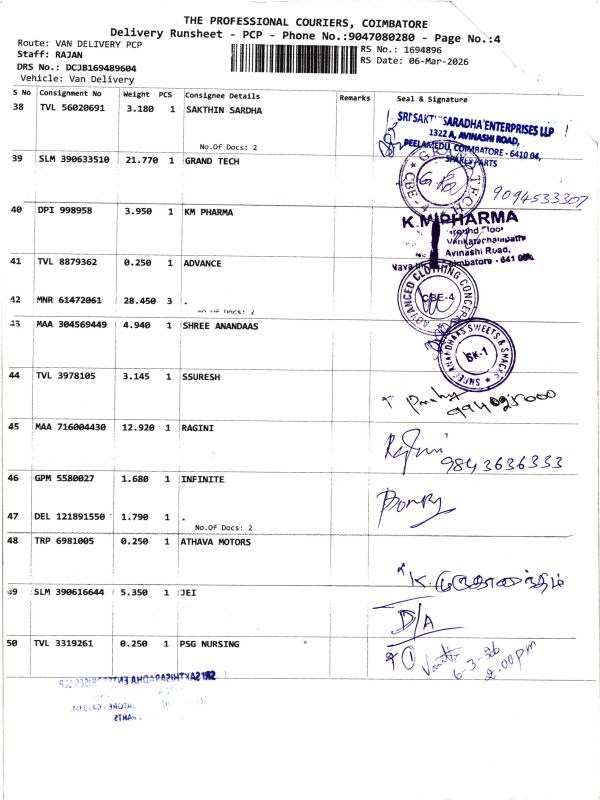 THE PROFESSIONAL COURIERS, COIMBATORE
Delivery Runsheet - PCP - Phone No.:9047080280 - Page No.:4
Route: VAN DELIVERY PCP
Staff: RAJAN
DRS No.: DCJB169489604
Vehicle: Van Delivery
RS No.: 1694896
RS Date: 06-Mar-2026
S No Consignment No Weight PCS Consignee Details Remarks Seal & Signature
38 TVL 56020691 3.180 1 SAKTHIN SARDHA
No.Of Docs: 2
SRI SAKTHI SARADHA ENTERPRISES LLP
1322 A, AVINASHI ROAD,
PEELAMEDU, COIMBATORE - 6410 04,
SPARES PARTS
39 SLM 390633510 21.770 1 GRAND TECH
GRAND TECH
CBE-4
9094533307
40 DPI 998958 3.950 1 KM PHARMA
K.M PHARMA
Ground Floor
Avinashi Road,
Coimbatore - 641 004
41 TVL 8879362 0.250 1 ADVANCE
ADVANCED CLOTHING CONCEPT
CBE-4
42 MNR 61472061 28.450 3 .
No.Of Docs: 2
43 MAA 304569449 4.940 1 SHREE ANANDAAS
SHREE ANANDHAAS SWEETS & SNACKS
SK-1
44 TVL 3978105 3.145 1 SSURESH
45 MAA 716004430 12.920 1 RAGINI
9843636333
46 GPM 5580027 1.680 1 INFINITE
47 DEL 121891550 1.790 1 .
No.Of Docs: 2
48 TRP 6981005 0.250 1 ATHAVA MOTORS
49 SLM 390616644 5.350 1 JEI
D/A
50 TVL 3319261 0.250 1 PSG NURSING
6-3-26
2.00pm